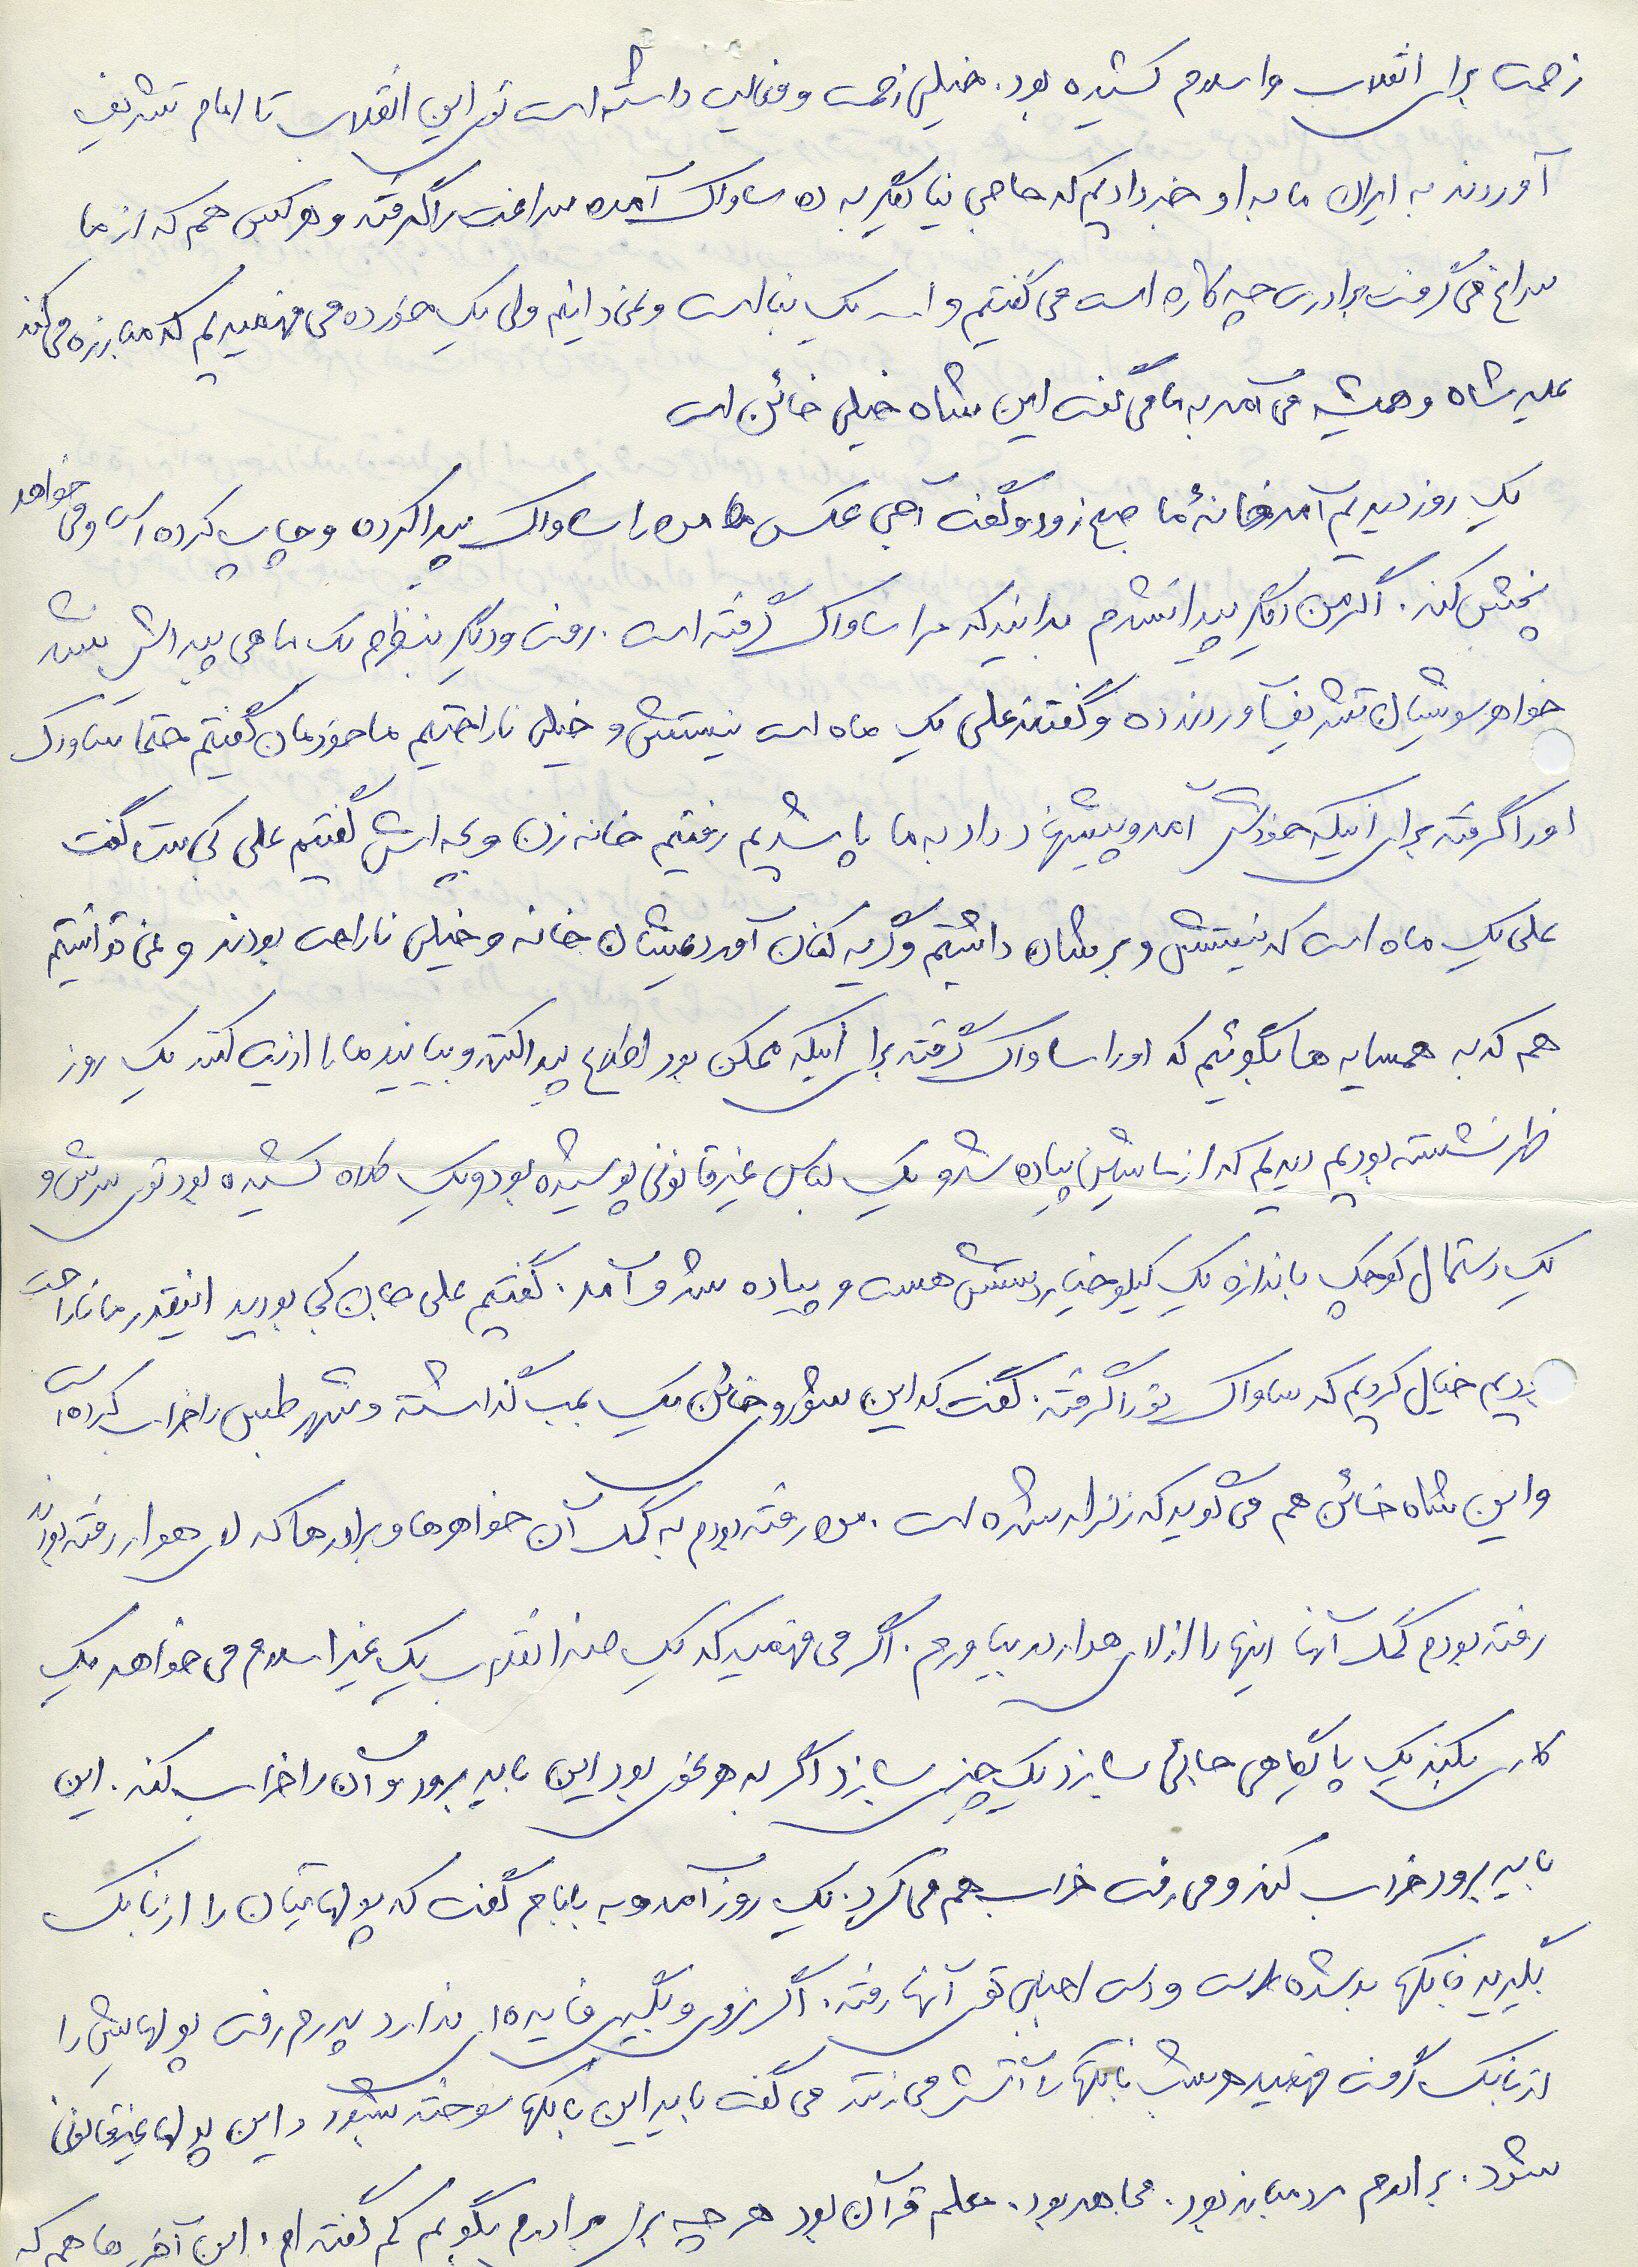 زحمت برای انقلاب و اسلام کشیده بود. خیلی زحمت و فعالیت داشته است توی این انقلاب تا امام تشریف
آوردند به ایران ما به او خبر دادیم که حاجی نیا دیگر به ده ساواک آمده سراغت را گرفته و هر کس هم که از ما
سراغ می گرفت برادرت چه کاره است می گفتیم و ا... یک بنا است و نمی دانیم ولی یک خورده می فهمیدیم که مبارزه می کند
علیه شاه و همیشه می آمد به ما می گفت این شاه خیلی خائن است
یک روز دیدیم آمد خانهٔ ما صبح زود و گفت آجی عکس من را ساواک پیدا کرده و چاپ کرده است و می خواهد
پخش کند. اگر من دیگر پیدا نشدم بدانید که مرا ساواک گرفته است. رفت و دیگر بنظرم یک ماهی پیدایش نشد
خواهر شوشیان تشریف آوردند ده و گفتند علی یک ماه است نیستش و خیلی ناراحتیم ما خودمان گفتیم حتما ساواک
او را گرفته برای اینکه خودش آمد و پیشنهاد داد به ما پا شدیم رفتیم خانه زن و بچه اش گفتیم علی کجاست گفت
علی یک ماه است که نیستش و برشان داشتیم و گریه کنان آوردیمشان خانه و خیلی ناراحت بودند و نمی توانستیم
هم که به همسایه ها بگوئیم که او را ساواک گرفته برای اینکه ممکن بود اطلاع پیدا کنند و بیایند ما را اذیت کنند یک روز
ظهر نشسته بودیم دیدیم که از ماشین پیاده شد و یک لباس غیر قانونی پوشیده بود و یک کلاه کشیده بود توی سرش و
یک دستمال کوچک باندازه یک کیلو خیار دستش هست و پیاده شد و آمد. گفتیم علی جان کجا بودید اینقدر ما ناراحت
بودیم خیال کردیم که ساواک تو را گرفته. گفت که این شوروی خائن یک بمب گذاشته و شهر طبس را خراب کرده است
و این شاه خائن هم می گوید که زلزله شده است. من رفته بودم به کمک آن خواهرها و برادرها که لای هوار رفته بودند
رفته بودم کمک آنها اینها را از لای هوار در بیاورم. اگر می فهمید که یک ضد انقلاب یک غیر اسلام می خواهد یک
کاری بکند یک پایگاهی جائی بسازد یک چیزی بسازد اگر به هر نحوی بود این باید برود و آن را خراب کند. این
باید برود خراب کند و می رفت خراب هم می کرد. یک روز آمد و به بابام گفت که پولهایتان را از بانک
بگیرید بانکها بد شده است و دست اجنبی توی آنها رفته. اگر نروی و نگیری فایده ای ندارد پدرم رفت پولهایش را
از بانک گرفت فهمید همش بانکها را آتش می زنند می گفت باید این بانکها سوخته بشود و این پولهای غیر قانونی
بشود. برادرم مرد مبارز بود. مجاهد بود. معلم قرآن بود هر چه برای برادرم بگویم کم گفته ام. این آخر ها هم که